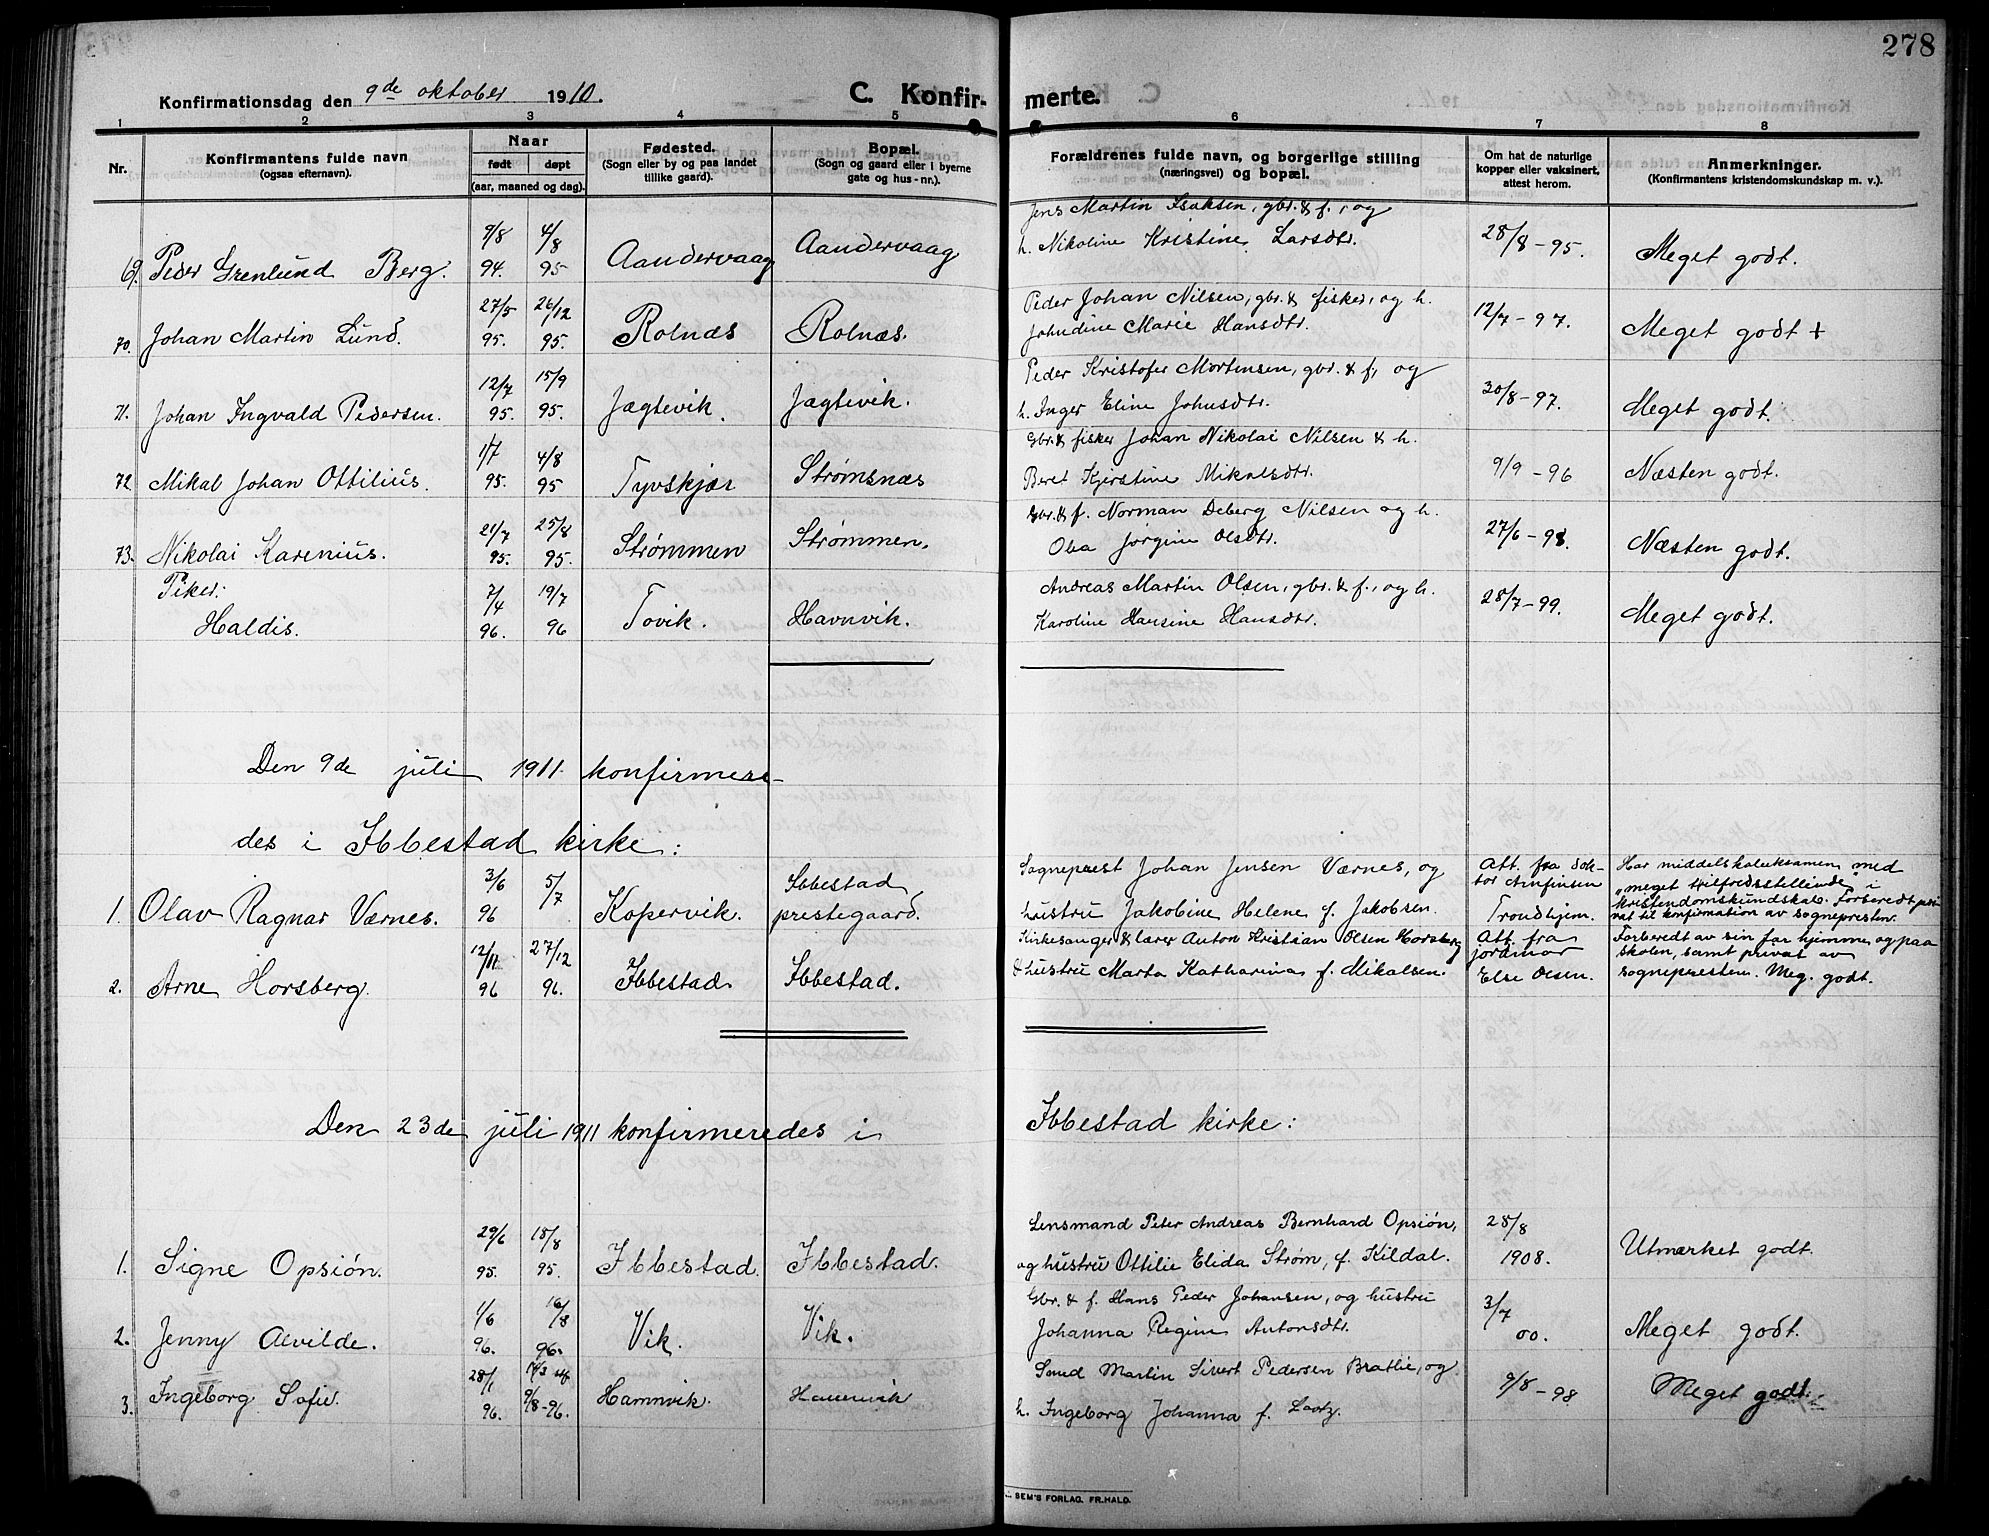 278
Konfirmationsdag den 9de oktober 1910.
C. Konfirmerte.
1 2 3 4 5 6 7 8
Nr.
Konfirmantens fulde navn
(ogsaa efternavn).
Naar
født døpt
(aar, maaned og dag).
Fødested.
(Sogn eller by og paa landet
tillike gaard).
Bopæl.
(Sogn og gaard eller i byerne
gate og hus-nr.).
Forældrenes fulde navn, og borgerlige stilling
(næringsvei) og bopæl.
Om hat de naturlige
kopper eller vaksinert,
attest herom.
Anmerkninger.
(Konfirmantens kristendomskundskap m. v.).
69. Peder Grenlund Berg. 9/8 94. 4/8 95 Aandervaag Aandervaag
Jens Martin Isaksen, gbr. & f., og
h. Nikoline Kristine Larsdtr. 28/8-95. Meget godt.
70. Johan Martin Lund. 27/5 95. 26/12 95. Rolnæs Rolnæs.
Peder Johan Nilsen, gbr. & fisker, og h.
Johndine Marie Hansdtr. 12/7-97. Meget godt +
71. Johan Ingvald Pedersen. 12/7 95. 15/9 95. Jægtevik. Jægtevik.
Peder Kristofer Mortensen, gbr. & f., og
h. Inger Eline Johnsdtr. 30/8-97. Meget godt.
72. Mikal Johan Ottilius. 1/7 95. 4/8 95 Tyvskjær Strømsnæs
Gbr. & fisker Johan Nikolai Nilsen & h.
Beret Kjerstine Mikalsdtr. 9/9-96 Næsten godt.
73. Nikolai Karenius. 21/7 95. 25/8 95. Strømmen Strømmen.
Gbr. & f. Norman Deberg Nilsen og h.
Olea Jørgine Olsdtr. 27/6-98. Næsten godt.
Piker:
Haldis. 7/4 96. 19/7 96 Tovik. Havnvik.
Andreas Martin Olsen, gbr. & f., og h.
Karoline Hansine Hansdtr. 28/7-99. Meget godt.
Den 9de juli 1911 konfirmere-
des i Ibbestad kirke:
1. Olav Ragnar Værnes. 3/6 96 5/7 Kopervik. Ibbestad
prestegaard.
Sogneprest Johan Jensen Værnes, og
hustru Jakobine Helene f. Jakobsen.
Att. fra dok-
tor Arnfinsen
Trondhjem.
Har middelskoleeksamen med
"meget tilfredsstillende" i
kristendomskundskab. Forberedt pri-
vat til konfirmation av sognepresten.
2. Arne Horsberg. 12/11 96 27/12 96. Ibbestad Ibbestad.
Kirkesanger & lærer Anton Kristian Olsen Horsberg
& hustru Marta Katharina f. Mikalsen.
Att. fra
jordmor
Else Olsen.
Forberedt av sin far hjemme og paa
skolen, samt privat av
sognepresten. Meg. godt.
Den 23de juli 1911 konfirmeredes i Ibbestad kirke:
1. Signe Opsiön. 29/6 95. 18/8 95. Ibbestad. Ibbestad.
Lensmand Peter Andreas Bernhard Opsiön,
og hustru Ottilie Elida Strøm, f. Kildal.
28/8
1908. Utmærket godt.
2. Jenny Alvilde. 1/6 96. 16/8 96. Vik. Vik.
Gbr. & f. Hans Peder Johansen, og hustru
Johanna Regine Antonsdtr.
3/7
00. Meget godt.
3. Ingeborg Sofie. 28/1 96. 9/8-96. Hamnvik. Hamnvik
Smed Martin Sivert Pedersen Bratlie, og
h. Ingeborg Johanna f. Lootz.
9/8-98 Meget godt.
SEM'S FORLAG, FR.HALD.